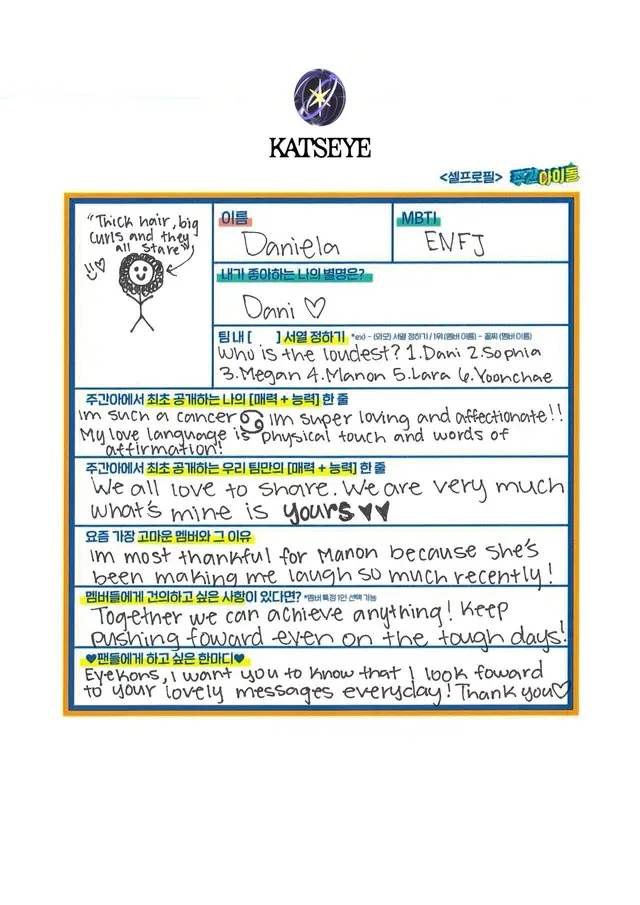 KATSEYE
<셀프로필> 주간아이돌
"Thick hair, big
curls and they
all stare"
이름
Daniela
MBTI
ENFJ
내가 좋아하는 나의 별명은?
Dani ♡
팀 내 [ ] 서열 정하기 *ex) - (외모) 서열 정하기 / 1위 (멤버 이름) - 꼴찌 (멤버 이름)
Who is the loudest? 1. Dani 2. Sophia
3. Megan 4. Manon 5. Lara 6. Yoonchae
주간아에서 최초 공개하는 나의 [매력 + 능력] 한 줄
Im such a cancer ♋ Im super loving and affectionate!!
My love language is physical touch and words of
affirmation!
주간아에서 최초 공개하는 우리 팀만의 [매력 + 능력] 한 줄
We all love to share. We are very much
what's mine is yours ♥♥
요즘 가장 고마운 멤버와 그 이유
Im most thankful for Manon because she's
been making me laugh so much recently!
멤버들에게 건의하고 싶은 사항이 있다면? *멤버 특정 1인 선택 가능
Together we can achieve anything! Keep
pushing foward even on the tough days!
♥팬들에게 하고 싶은 한마디♥
Eyekons, i want you to know that I look foward
to your lovely messages everyday! Thank you♡